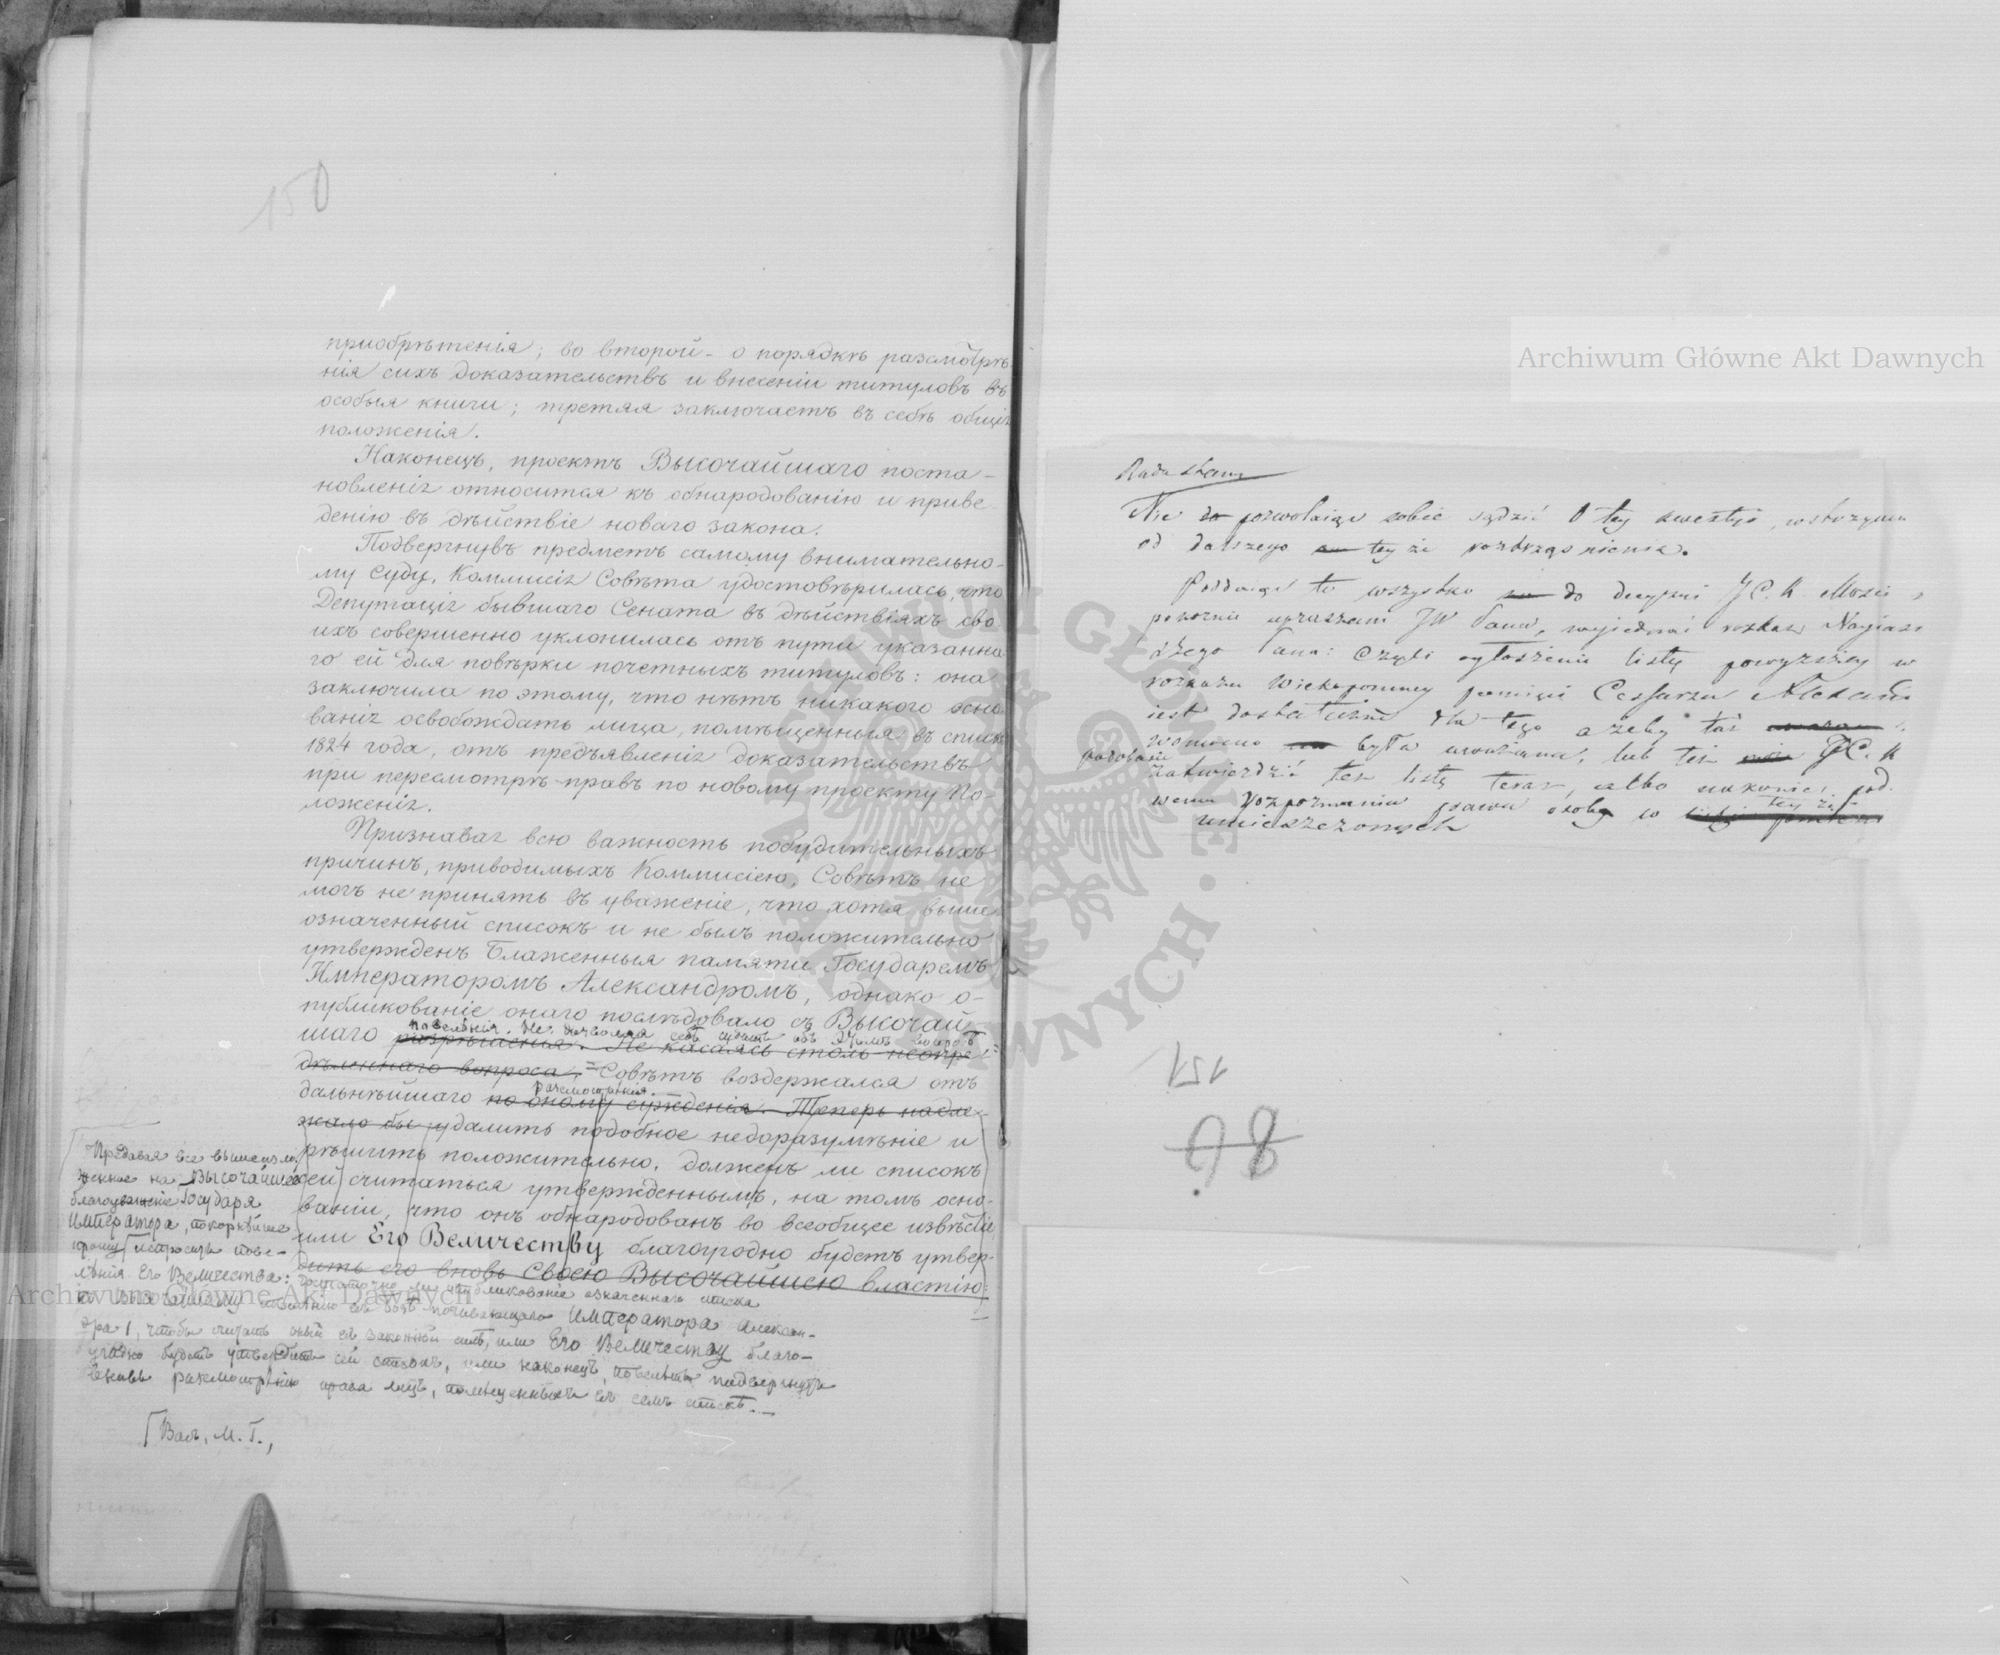 150
приобрѣтенія; во второй - о порядкѣ разсмотрѣ-
нія сихъ доказательствъ и внесеніи титуловъ въ
особыя книги; третяя заключаетъ въ себѣ общія
положенія.
Наконецъ, проектъ Высочайшаго поста-
новленія относится къ обнародованію и приве-
денію въ дѣйствіе новаго закона.
Подвергнувъ предметъ самому внимательно-
му суду, Коммисія Совѣта удостовѣрилась, что
Депутація бывшаго Сената въ дѣйствіяхъ сво-
ихъ совершенно уклонилась отъ пути указанна-
го ей для повѣрки почетныхъ титуловъ: она
заключила по этому, что нѣтъ никакого осно-
ванія освобождать лица, помѣщенныя въ списк
1824 года, отъ предъявленія доказательствъ
при пересмотрѣ правъ по новому проекту По-
ложенія.
Признавая всю важность побудительныхъ
причинъ, приводимыхъ Коммисіею, Совѣтъ не
могъ не принять въ уваженіе, что хотя выше
означенный списокъ и не былъ положительно
утвержденъ Блаженныя памяти Государемъ
Императоромъ Александромъ, однако о-
публикованіе онаго послѣдовало съ Высочай-
повелѣнія. Не дозволяя себѣ судить объ этомъ вопросѣ
шаго разрѣшенія. Не касаясь столь неопре-
дѣленнаго вопроса, Совѣтъ воздержался отъ
разсмотрѣнія.
дальнѣйшаго по оному сужденія. Теперь надле-
жало бы удалить подобное недоразумѣніе и
рѣшить положительно, долженъ ли списокъ
сей считаться утвержденнымъ, на томъ осно-
ваніи, что онъ обнародованъ во всеобщее извѣстіе
или Его Величеству благоугодно будетъ утвер-
дить его вновь Своею Высочайшею властію.
Предавая все вышеизло-
женное на Высочайшее
благоуваженіе Государя
Императора, покорнѣйше
прошу испросить пове-
лѣнія Его Величества:
достаточно ли опубликованіе означеннаго списка
по Высочайшему повелѣнію въ Бозѣ почивающаго Императора Алексан-
дра I, чтобы считать оный въ законной силѣ, или Его Величеству благо-
угодно будетъ утвердить сей списокъ, или наконецъ, повелѣть подвергнуть
вновь разсмотрѣнію права лицъ, помѣщенныхъ въ семъ спискѣ.
Вашъ, М. Г.,
Rada Stanu
Nie pozwalaiąc sobie sądzić o tey kwestyi, wstrzyma
od dalszego teyże roztrząsnienia.
Poddaiąc to wszystko do decyzyi J C. K Mości,
pokornie upraszam JW Pana, wyiednać rozkaz Nayiaś
Pana: Czyli ogłoszenie listy powyższey w
rozkazu Wiekopomney pamięci Cesarza Alexan
iest dostateczne dla tego ażeby taż
była uważana, lub też JC. K
podobało
zatwierdzić też listę teraz, albo nakoniec pod
rozpoznania prawa osoby w
tey że
umieszczonych
151
86
Archiwum Główne Akt Dawnych
Archiwum Główne Akt Dawnych
ARCHIWUM GŁÓWNE AKT DAWNYCH